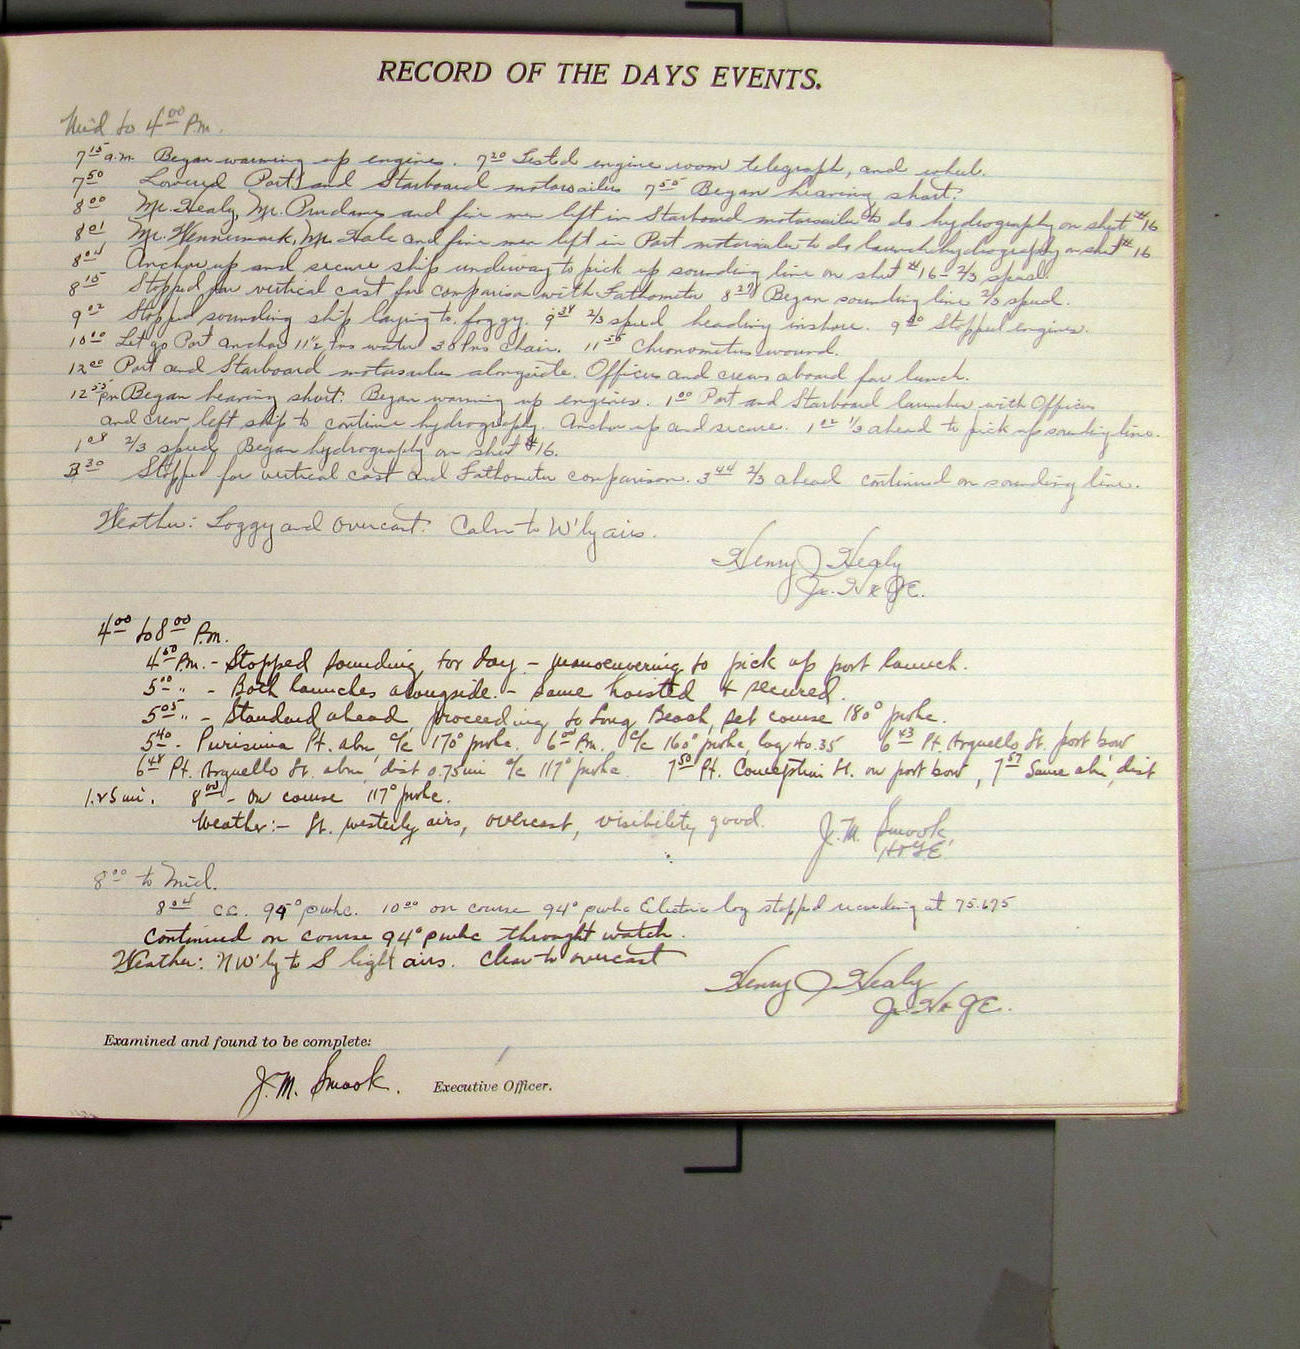 RECORD OF THE DAYS EVENTS.
Mid to 4 00 Pm.
7 15 a.m. Began warming up engines. 7 20 Tested engine room telegraph, and wheel.
7 50 Lowered Port and Starboard motorsailers 7 55 Began heaving short.
8 00 Mr. Healy, Mr. and five men left in Starboard motorsailer to do hydrography on sheet #16
8 01 Mr. Wennermark, Mr. Hale and five men left in Port motorsailer to do launch hydrography on sheet #16
8 04 Anchor up and secure ship underway to pick up sounding line on sheet #16 - 2/3 speed
8 15 Stopped for vertical cast for comparison with Fathometer 8 27 Began sounding line 2/3 speed.
9 02 Stopped sounding ship laying to. foggy. 9 38 2/3 speed heading inshore. 9 Stopped engines.
10 00 Let go Port anchor 11½ fms water 30 fms chain. 11 50 Chronometers wound.
12 00 Port and Starboard motorsailers alongside. Officers and crews aboard for lunch.
12 55 pm Began heaving short. Began warming up engines. 1 00 Port and Starboard launches with Officers
and crew left ship to continue hydrography. Anchor up and secure. 1 02 1/3 ahead to pick up sounding line.
1 08 2/3 speed Began hydrography on sheet #16.
3 30 Stopped for vertical cast and Fathometer comparison. 3 44 2/3 ahead continued on sounding line.
Weather: Foggy and overcast. Calm to W'ly airs.
Henry J. Healy
Jr. H & GE.
4 00 to 8 00 P.m.
4 50 Pm. - Stopped sounding for day - manoeuvering to pick up port launch.
5 00 " - Both launches alongside. - same hoisted & secured.
5 05 " - Standard ahead, proceeding to Long Beach, set course 180° pwhc.
5 40 - Purisima Pt. abm c/c 170° pwhc. 6 00 Pm. c/c 160° pwhc, log 40.35 6 43 Pt. Arguello Lt. port bow
6 48 Pt. Arguello Lt. abm, dist 0.75 mi c/c 117° pwhc. 7 50 Pt. Conception Lt. on port bow, 7 57 Same abm, dist
1.25 mi. 8 00 - on course 117° pwhc.
Weather:- Lt. westerly airs, overcast, visibility good.
J. M. Smook,
H&GE
8 00 to Mid.
8 04 cc. 94° pwhc. 10 00 on course 94° pwhc Electric log stopped recording at 75.675
Continued on course 94° pwhc throught watch.
Weather: NW'ly to S light airs. Clear to overcast
Henry J. Healy
Jr. H & GE.
Examined and found to be complete:
J. M. Smook. Executive Officer.